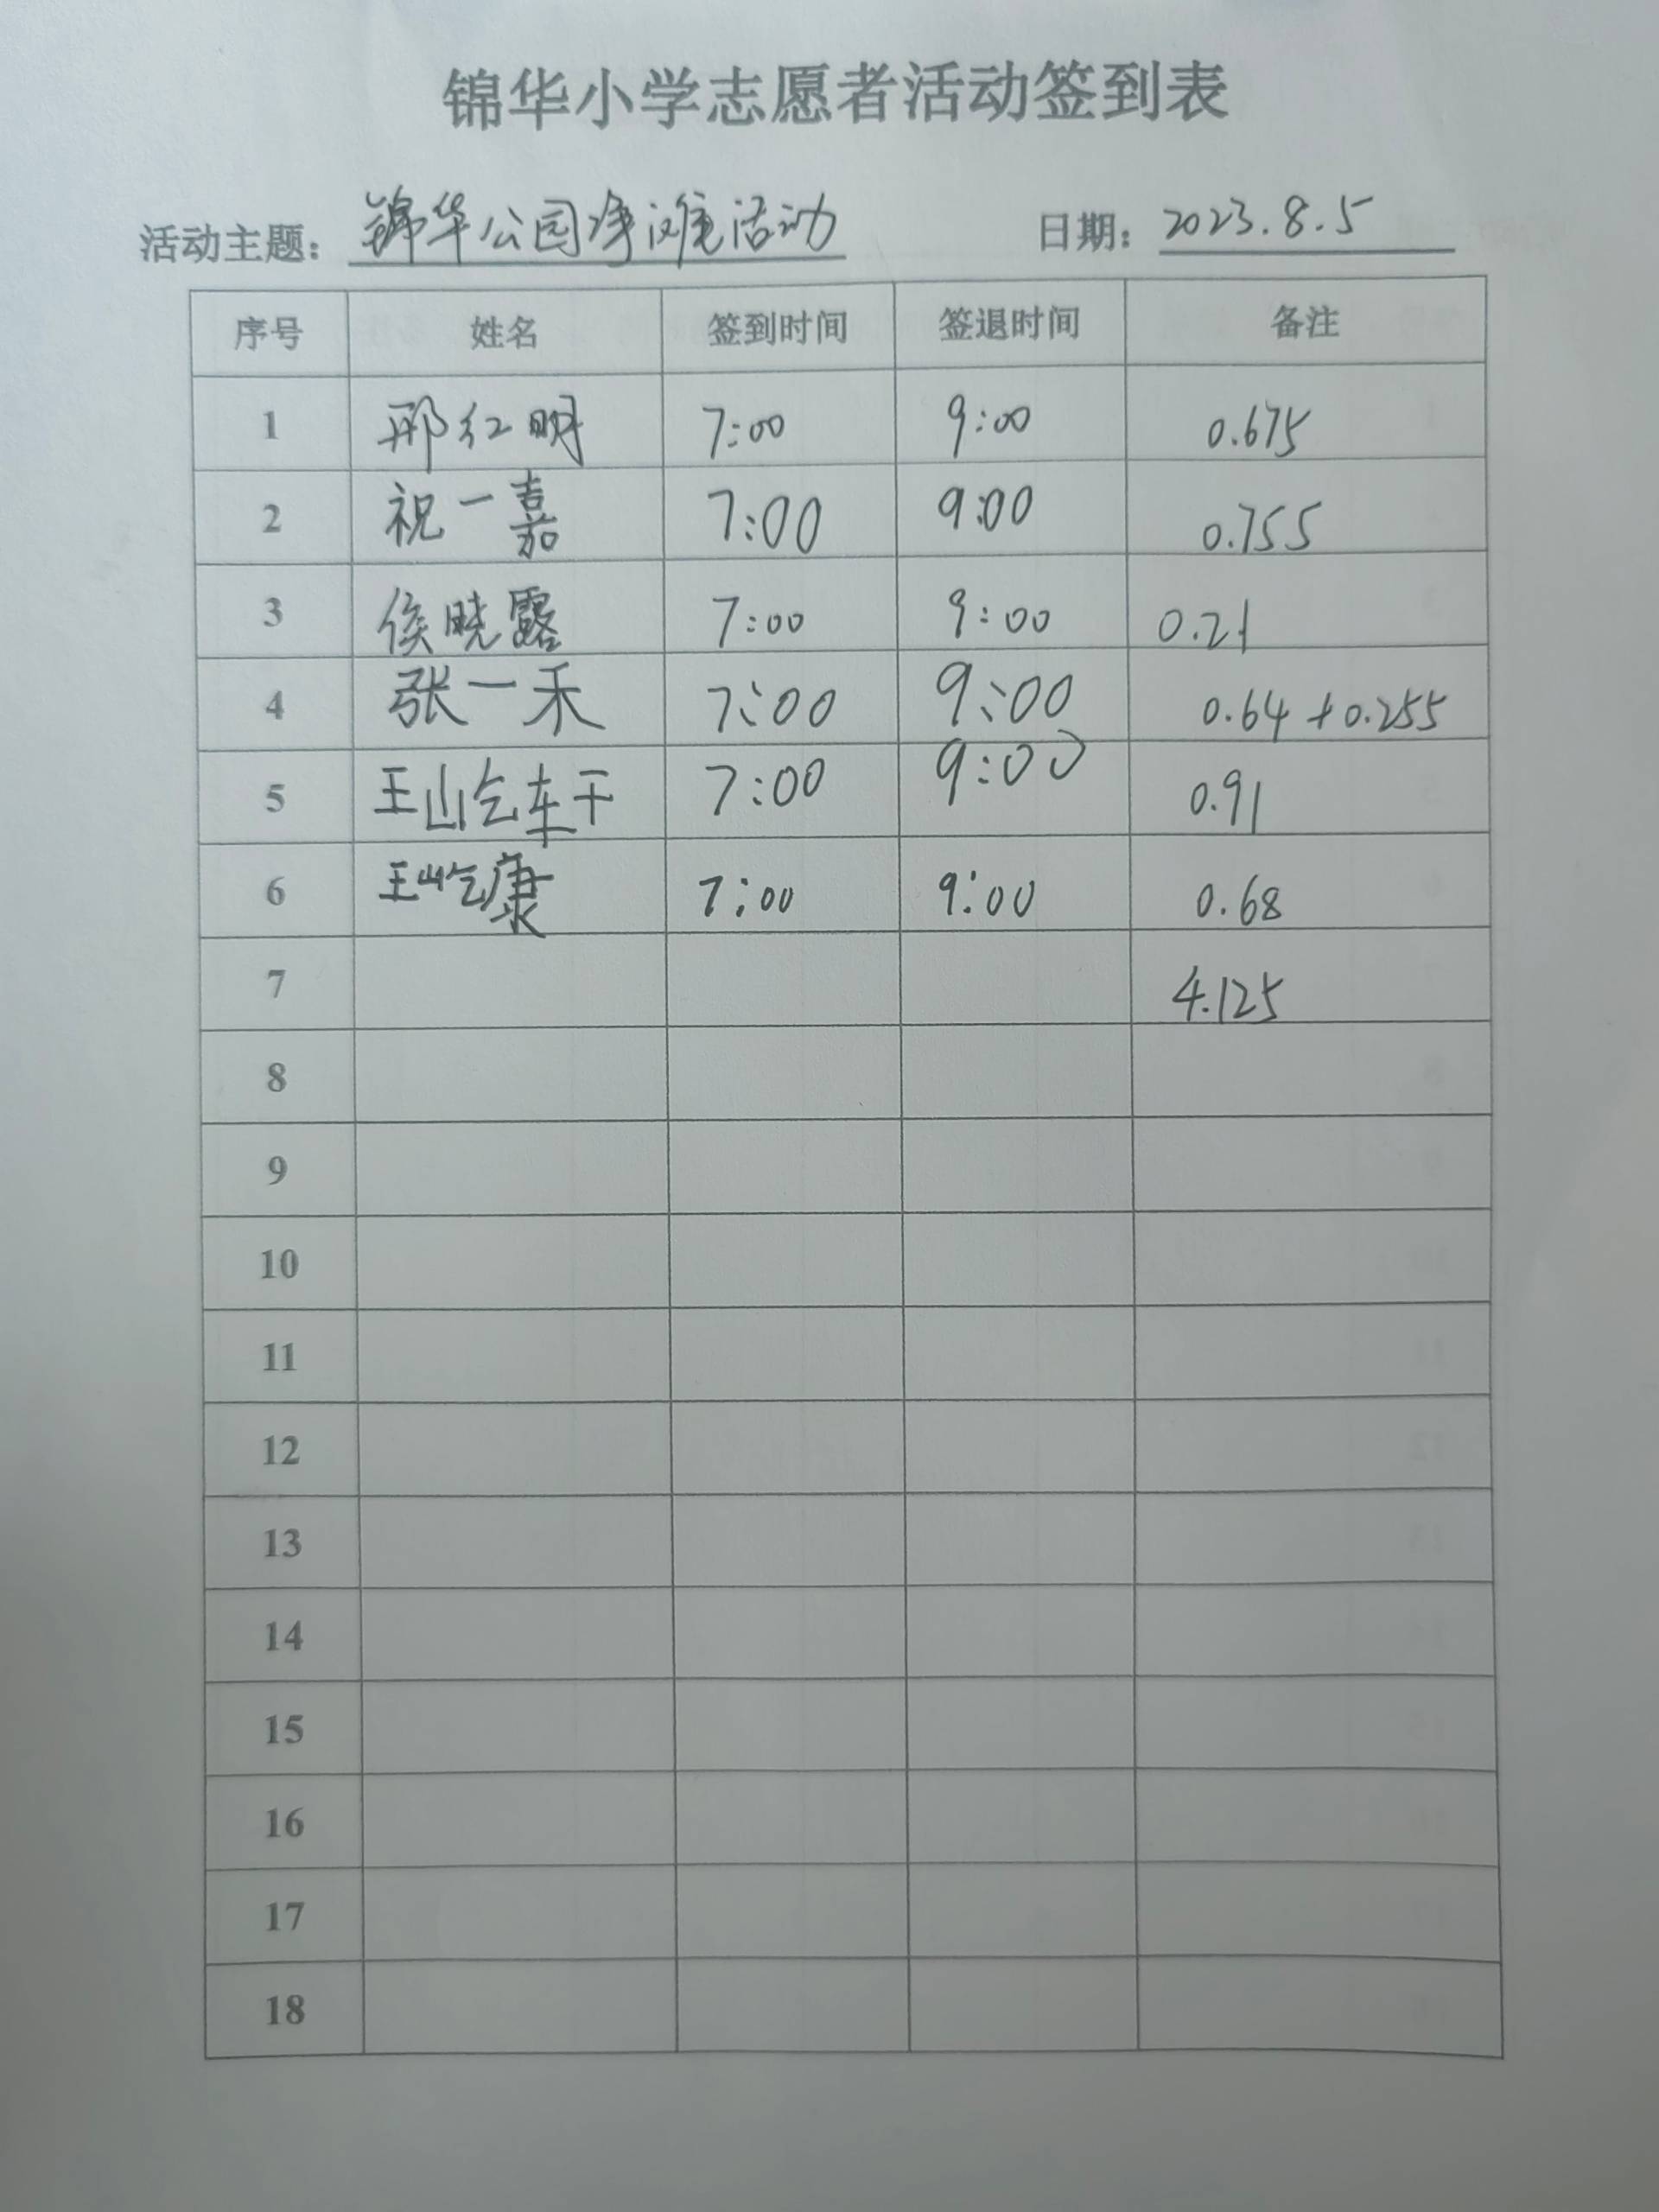 锦华小学志愿者活动签到表
活动主题: 锦华公园净滩活动 日期: 2023.8.5
序号 姓名 签到时间 签退时间 备注
1 邢红明 7:00 9:00 0.675
2 祝一嘉 7:00 9:00 0.755
3 侯晓露 7:00 9:00 0.21
4 张一禾 7:00 9:00 0.64+0.255
5 王屹轩 7:00 9:00 0.91
6 王屹康 7:00 9:00 0.68
7 4.125
8
9
10
11
12
13
14
15
16
17
18